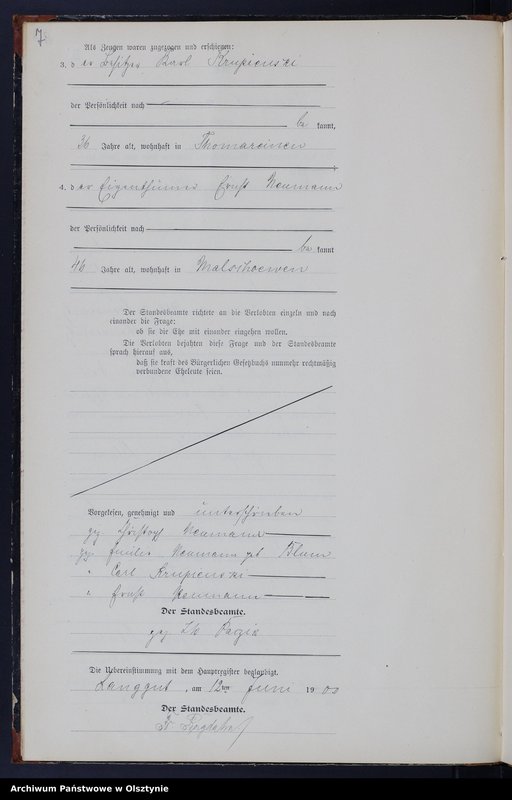 7
Als Zeugen waren zugezogen und erschienen:
3. der Besitzer Karl Krupienski
der Persönlichkeit nach
be kannt,
36 Jahre alt, wohnhaft in Thomareinen
4. der Eigenthümer Ernst Neumann
der Persönlichkeit nach
be kannt
46 Jahre alt, wohnhaft in Malschoewen
Der Standesbeamte richtete an die Verlobten einzeln und nach
einander die Frage:
ob sie die Ehe mit einander eingehen wollen.
Die Verlobten bejahten diese Frage und der Standesbeamte
sprach hierauf aus,
daß sie kraft des Bürgerlichen Gesetzbuchs nunmehr rechtmäßig
verbundene Eheleute seien.
Vorgelesen, genehmigt und unterschrieben
gz. Neumann
gz. Neumann geb. Blum
" Carl Krupienski
" Ernst Neumann
Der Standesbeamte.
gz.
Die Uebereinstimmung mit dem Hauptregister beglaubigt.
Langgut, am 12ten Juni 19
Der Standesbeamte.
Archiwum Państwowe w Olsztynie